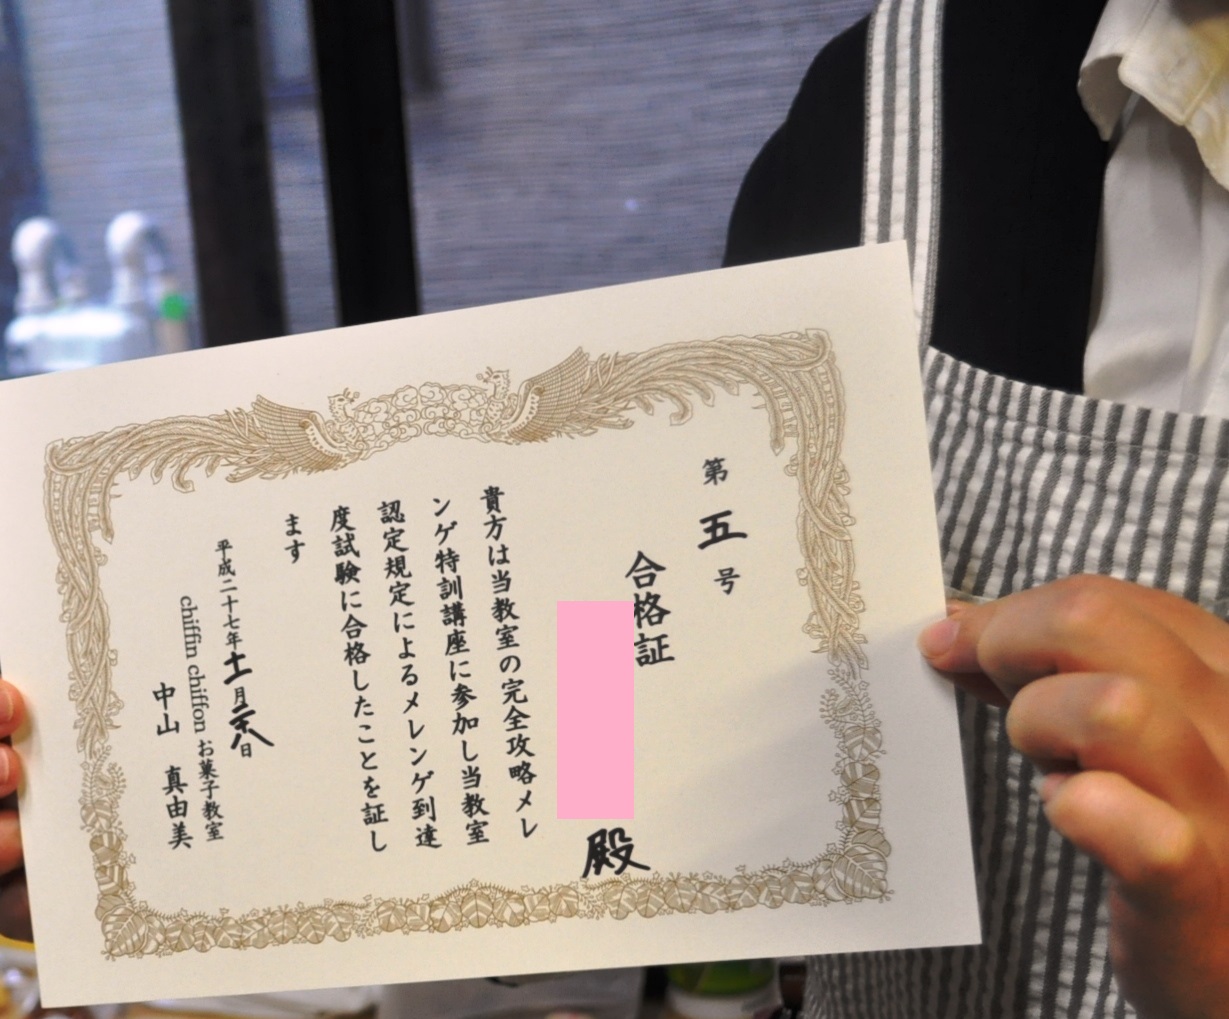 第五号
合格証
殿
貴方は当教室の完全攻略メレ
ンゲ特訓講座に参加し当教室
認定規定によるメレンゲ到達
度試験に合格したことを証し
ます
平成二十七年十一月二十八日
chiffin chiffon お菓子教室
中山 真由美